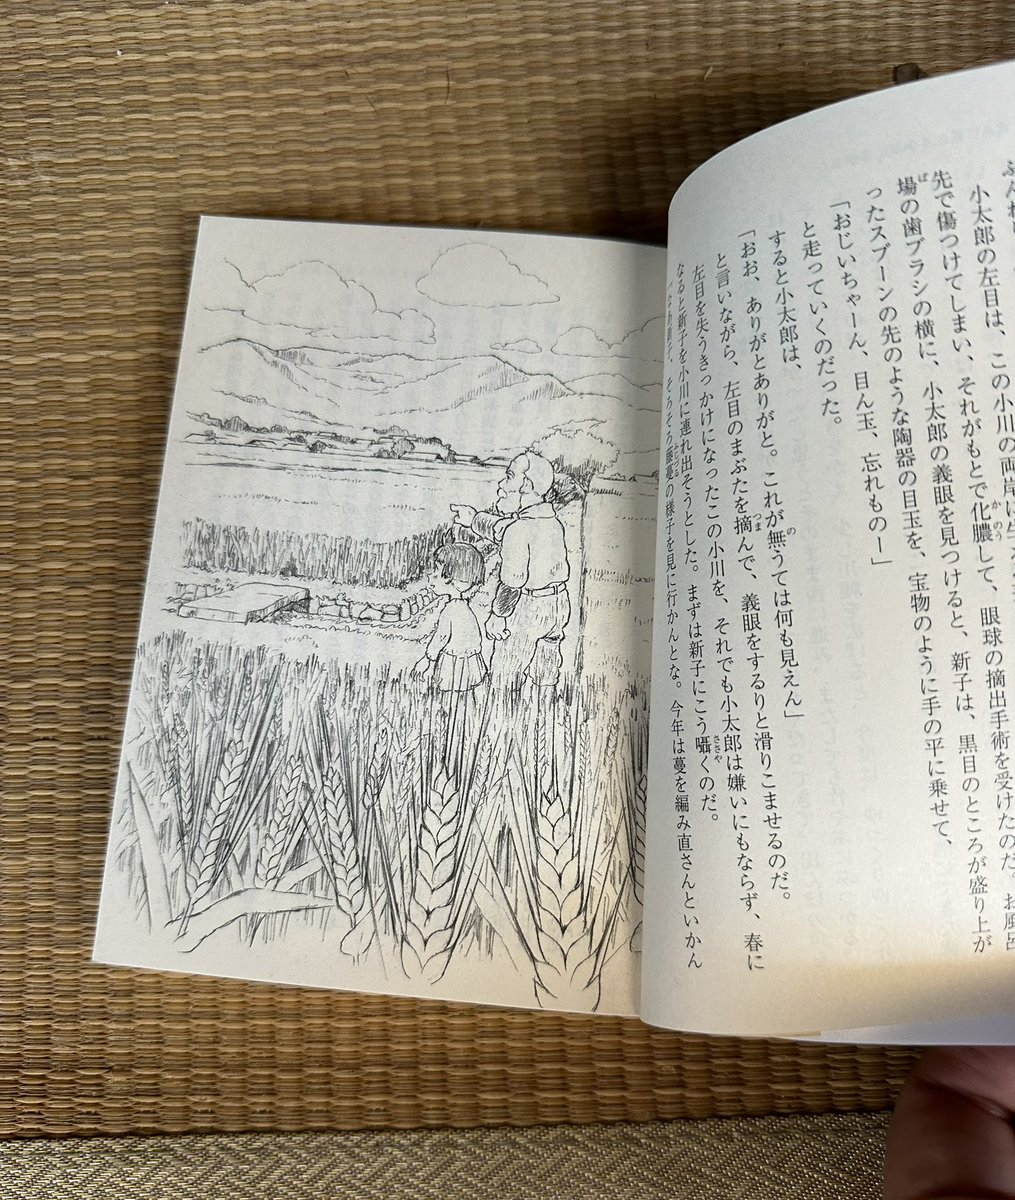 小太郎の左目は、この小川の両岸に生
先で傷つけてしまい、それがもとで化膿して、眼球の摘出手術を受けたのだ。お風呂
場の歯ブラシの横に、小太郎の義眼を見つけると、新子は、黒目のところが盛り上が
ったスプーンの先のような陶器の目玉を、宝物のように手の平に乗せて、
「おじいちゃーん、目ん玉、忘れものー」
と走っていくのだった。
すると小太郎は、
「おお、ありがとありがと。これが無うては何も見えん」
と言いながら、左目のまぶたを摘んで、義眼をするりと滑りこませるのだ。
左目を失うきっかけになったこの小川を、それでも小太郎は嫌いにもならず、春に
なると新子を小川に連れ出そうとした。まずは新子にこう囁くのだ。
そろそろ藤蔓の様子を見に行かんとな。今年は蔓を編み直さんといかん